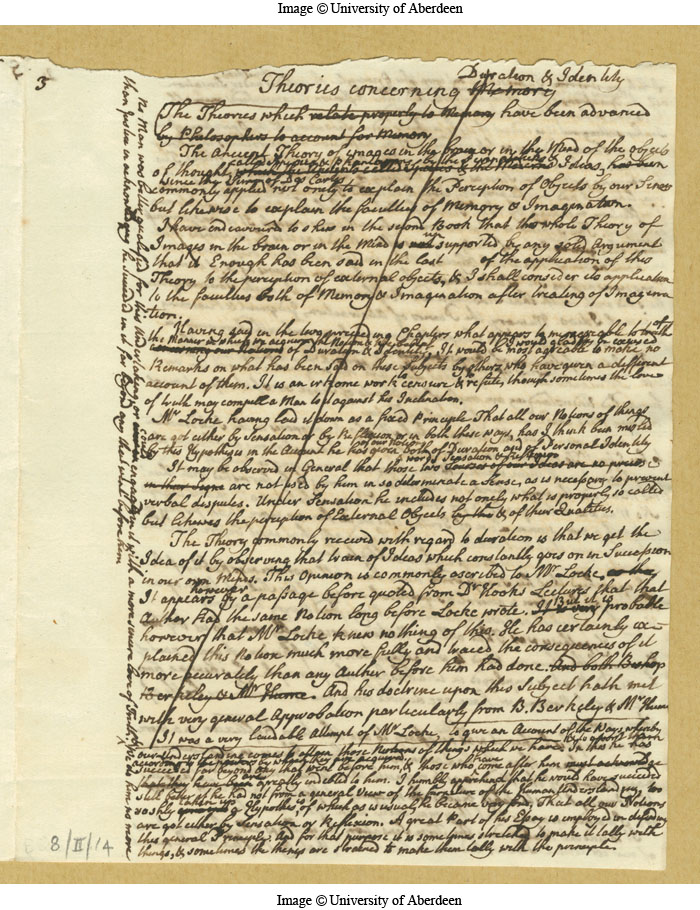 Image © University of Aberdeen
3
Duration & Identity
Theories concerning Memory
The Theories which relate properly to Memory have been advanced
by Philosophers to account for Memory
The Ancient Theory of images in the brain or in the Mind of the objects
of thought, called Species & Phantasms by the Peripateticks & Ideas, has been
since the time of Des Cartes
commonly applied not onely to explain the Perception of Objects by our Senses
but likewise to explain the faculties of Memory & Imagination.
I have endeavoured to shew in the second Book that this whole Theory of
Images in the brain or in the Mind is not supported by any solid Argument
that it Enough has been said in the last of the application of this
Theory to the perception of external objects, & I shall consider its application
to the faculties both of Memory & Imagination after treating of Imagina
tion.
Having said in the two preceeding Chapters what appears to me agreable to truth of
the Manner in which we acquire the Notions
of Duration & Identity, I would gladly be excused
It would be most agreable to make no
Remarks on what has been said on these subjects by others who have given a different
account of them. It is an irksome work to censure & refute, though sometimes the love
of truth may compell a Man to it against his Inclination.
Mr Locke having laid it down as a fixed Principle That all our Notions of things
are got either by Sensation or by Reflexion or in both these ways, has I think been misled
by this Hypothesis in the Account he has given both of our Notions of Duration and of Personal Identity
words Sensation & Reflexion
It may be observed in General that those two Sources of our Ideas are no precise
in their Signe are not used by him in so determinate a Sense, as is necessary to prevent
verbal disputes. Under Sensation he includes not onely what is properly so called
but likewise the perception of External Objects by the & of their Qualities.
The Theory commonly received with regard to duration is that we get the
Idea of it by observing that train of Ideas which constantly goes on in Succession
in our own Minds. This Opinion is commonly ascribed to Mr Locke.
It appears however by a passage before quoted from Dr Hooks Lectures that that
Author had the same Notion long before Locke wrote. But it is It is very probable
however that Mr Locke knew nothing of this. He has certainly ex-
plained this Notion much more fully and traced the consequences of it
more accurately than any Author before him had done. And both Bishop
Berkeley & Mr Hume. And his doctrine upon this Subject hath met
with very general Approbation particularly from B. Berkeley & Mr Hume
It was a very laudable Attempt of Mr Locke, to give an Account of the Ways whereby
our understanding comes to attain those Notions of things which we have. In this he has
succeeded far beyond any that went before him, & those who come after him must acknowledge
that they have been greatly indebted to him. I humbly apprehend that he would have succeeded
still better if he had not from a general View of the furniture of the Human Understanding, too
rashly taken up a Hypothesis of which as is usual, he became very fond, That all our Notions
are got either by Sensation or Reflexion. A great Part of his Essay is employed in defending
this general Principle; And for this purpose it is sometimes stretched to make it tally with
things, & sometimes the things are strained to make them tally with the principle.
No Man was better qualified for this Undertaking, or engaged in it with a more sincere love of Truth
8/II/14
Image © University of Aberdeen